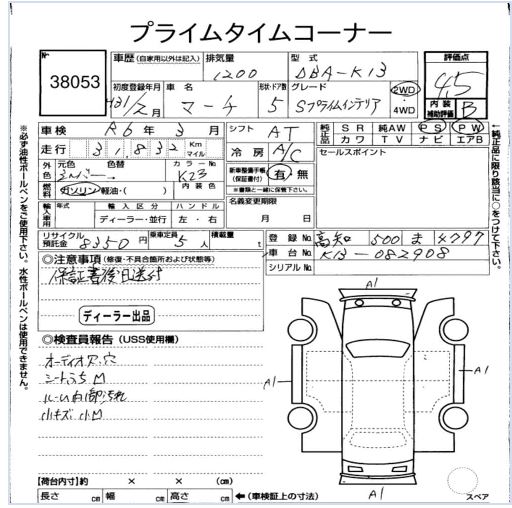 プライムタイムコーナー
No
38053
車歴 (自家用以外は記入)
排気量
1200
型式
DBA-K13
評価点
4.5
初度登録年月
H31/2月
車名
マーチ
形状・ドア数
5
グレード
Sプライムインテリア
2WD
4WD
内装
補助評価
B
車検
R6年3月
シフト
AT
純正品
SR 純AW PS PW
カワ TV ナビ エアB
走行
31,832
Km
マイル
冷房
A/C
セールスポイント
外色
元色 色替
シルバー→
カラーNo
K23
新車整備手帳
(保証書付)
有・無
※書類と一緒に保管下さい。
燃料
ガソリン・軽油・( )
内装色
名義変更期限
月 日
輸入車用
年式
輸入区分
ディーラー・並行
ハンドル
左・右
リサイクル
預託金
8350円
乗車定員
5人
積載量
t
登録No.
高知 500 ま 4797
車台No.
K13-082908
シリアルNo.
◎注意事項 (修復・不具合箇所および状態等)
保証書後日送付
ディーラー出品
◎検査員報告 (USS使用欄)
オーディオ穴・穴
シートふちM
ルーム内部汚れ
小キズ小M
A1
A1
A1
A1
スペア
【荷台内寸】約 × × (cm)
長さ cm 幅 cm 高さ cm ←(車検証上の寸法)
※必ず油性ボールペンをご使用下さい。水性ボールペンは使用できません。
←純正品に限り該当に○をつけて下さい。